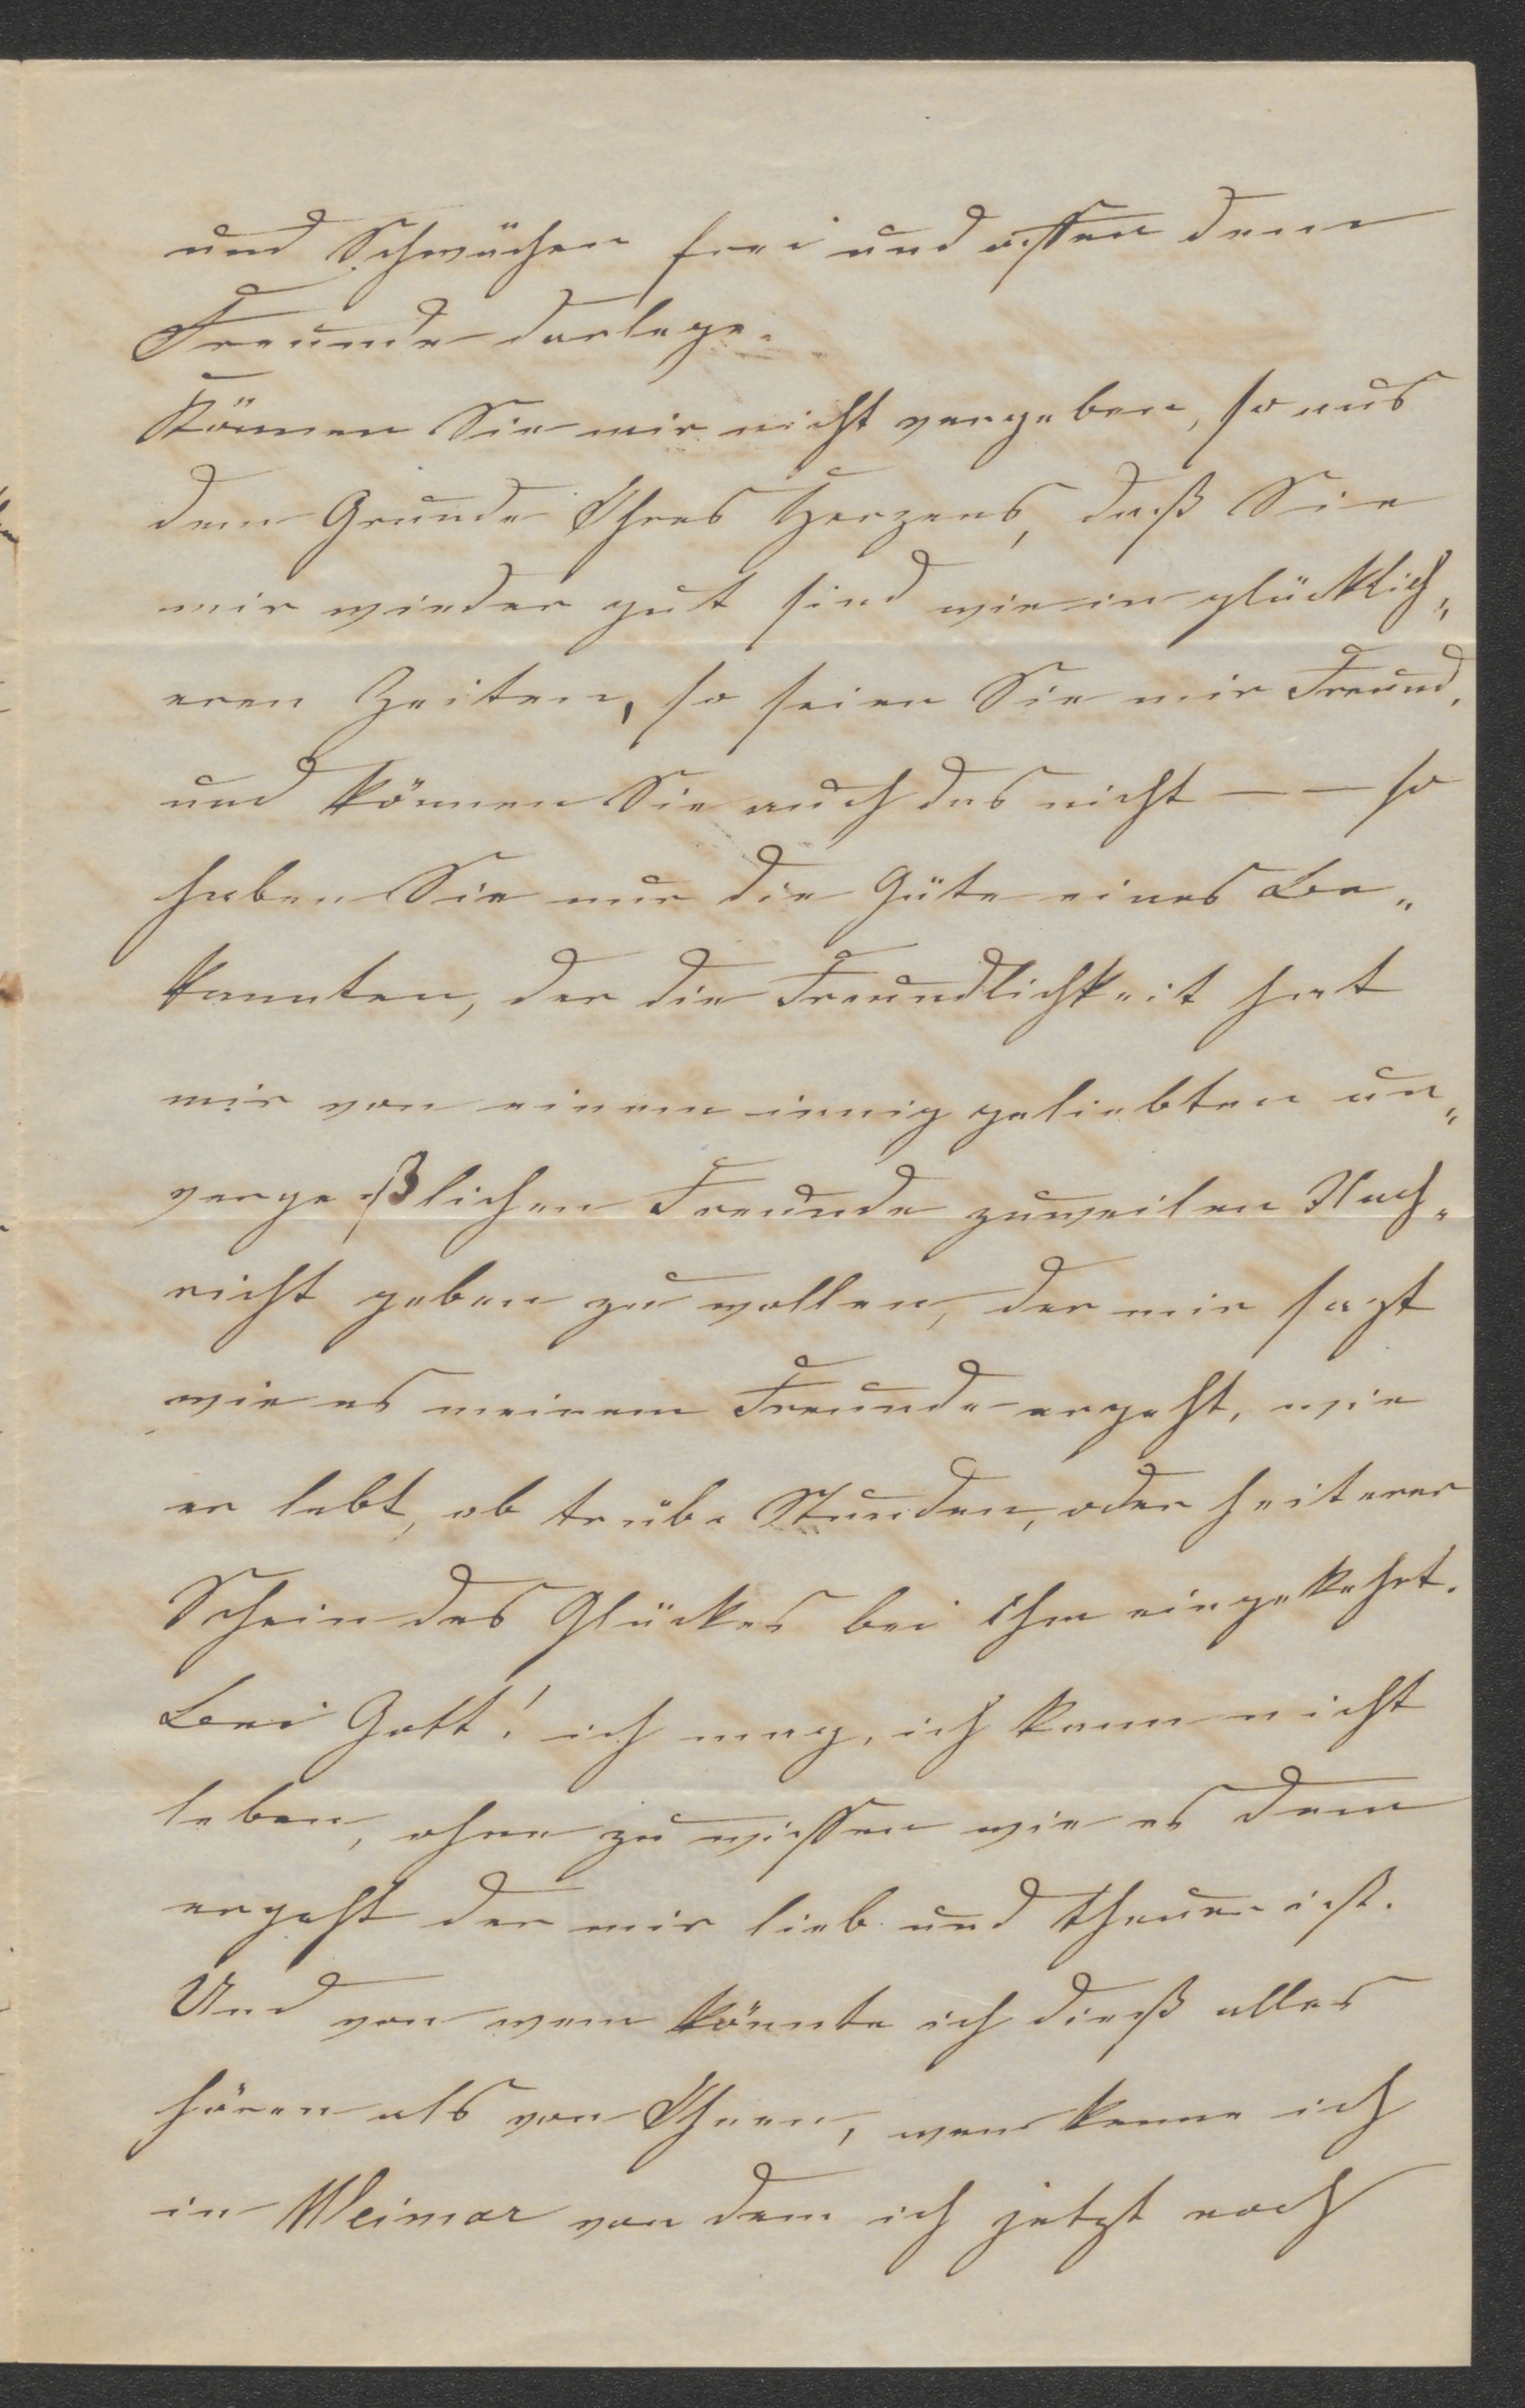 und Schwächen frei und offen dem
Freunde darlege.
Können Sie mir nicht vergeben, so aus
dem Grunde Ihres Herzens, daß Sie
mir wieder gut sind wie in glücklich„
eren Zeiten, so seien Sie mir Freund,
und können Sie auch das nicht — — so
haben Sie nur die Güte eines Be„
kannten, der die Freundlichkeit hat
mir von einem innig geliebten un„
vergeßlichen Freunde zuweilen Nach„
richt geben zu wollen, der mir sagt
wie es meinem Freunde ergeht, wie
er lebt, ob trübe Stunden, oder heiterer
Schein des Glückes bei ihm eingekehrt.
Bei Gott! ich mag, ich kann nicht
leben, ohne zu wissen wie es dem
ergeht der mir lieb und theuer ist.
Und von wem könnte ich dieß alles
hören als von Ihnen, wen kenne ich
in Weimar von dem ich jetzt noch